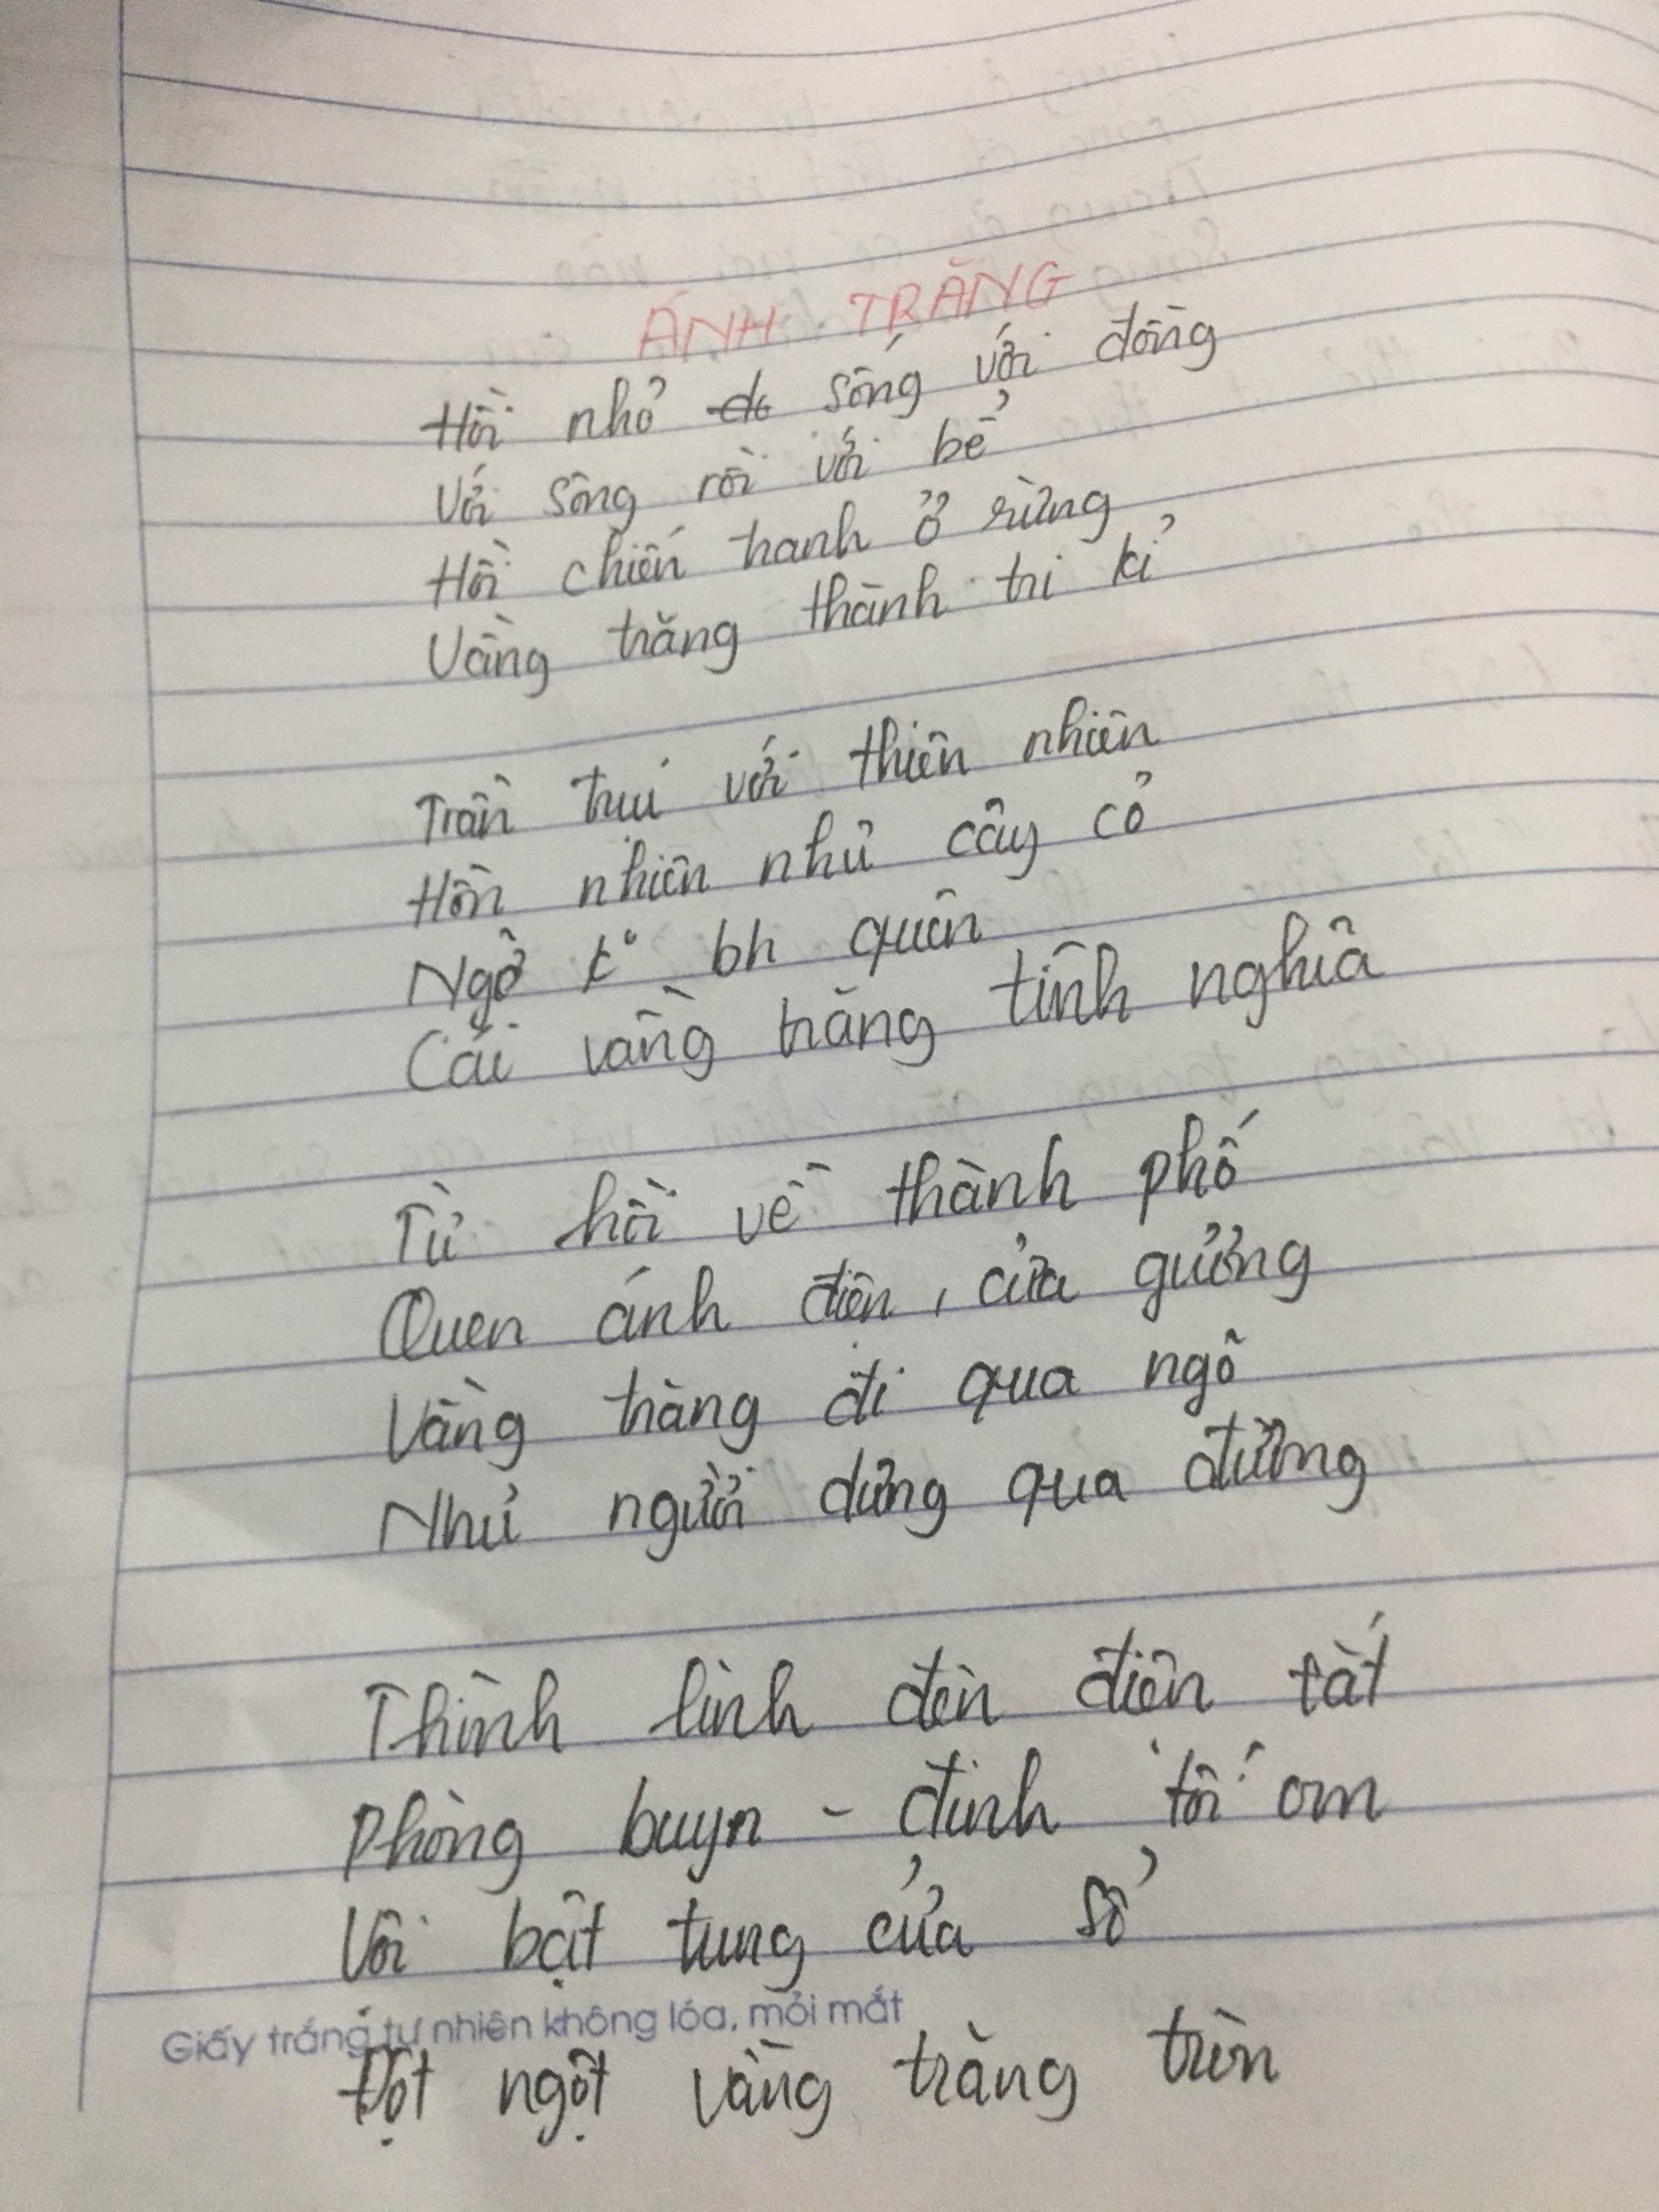 ÁNH TRĂNG
Hồi nhỏ sống với đồng
Với sông rồi với bể
Hồi chiến tranh ở rừng
Vầng trăng thành tri kỉ
Trần trụi với thiên nhiên
Hồn nhiên như cây cỏ
Ngỡ k° bh quên
Cái vầng trăng tình nghĩa
Từ hồi về thành phố
Quen ánh điện, cửa gương
Vầng trăng đi qua ngõ
Như người dưng qua đường
Thình lình đèn điện tắt
Phòng buyn - đinh tối om
Vội bật tung cửa sổ
Giấy trắng tự nhiên không lóa, mỏi mắt
Đột ngột vầng trăng tròn